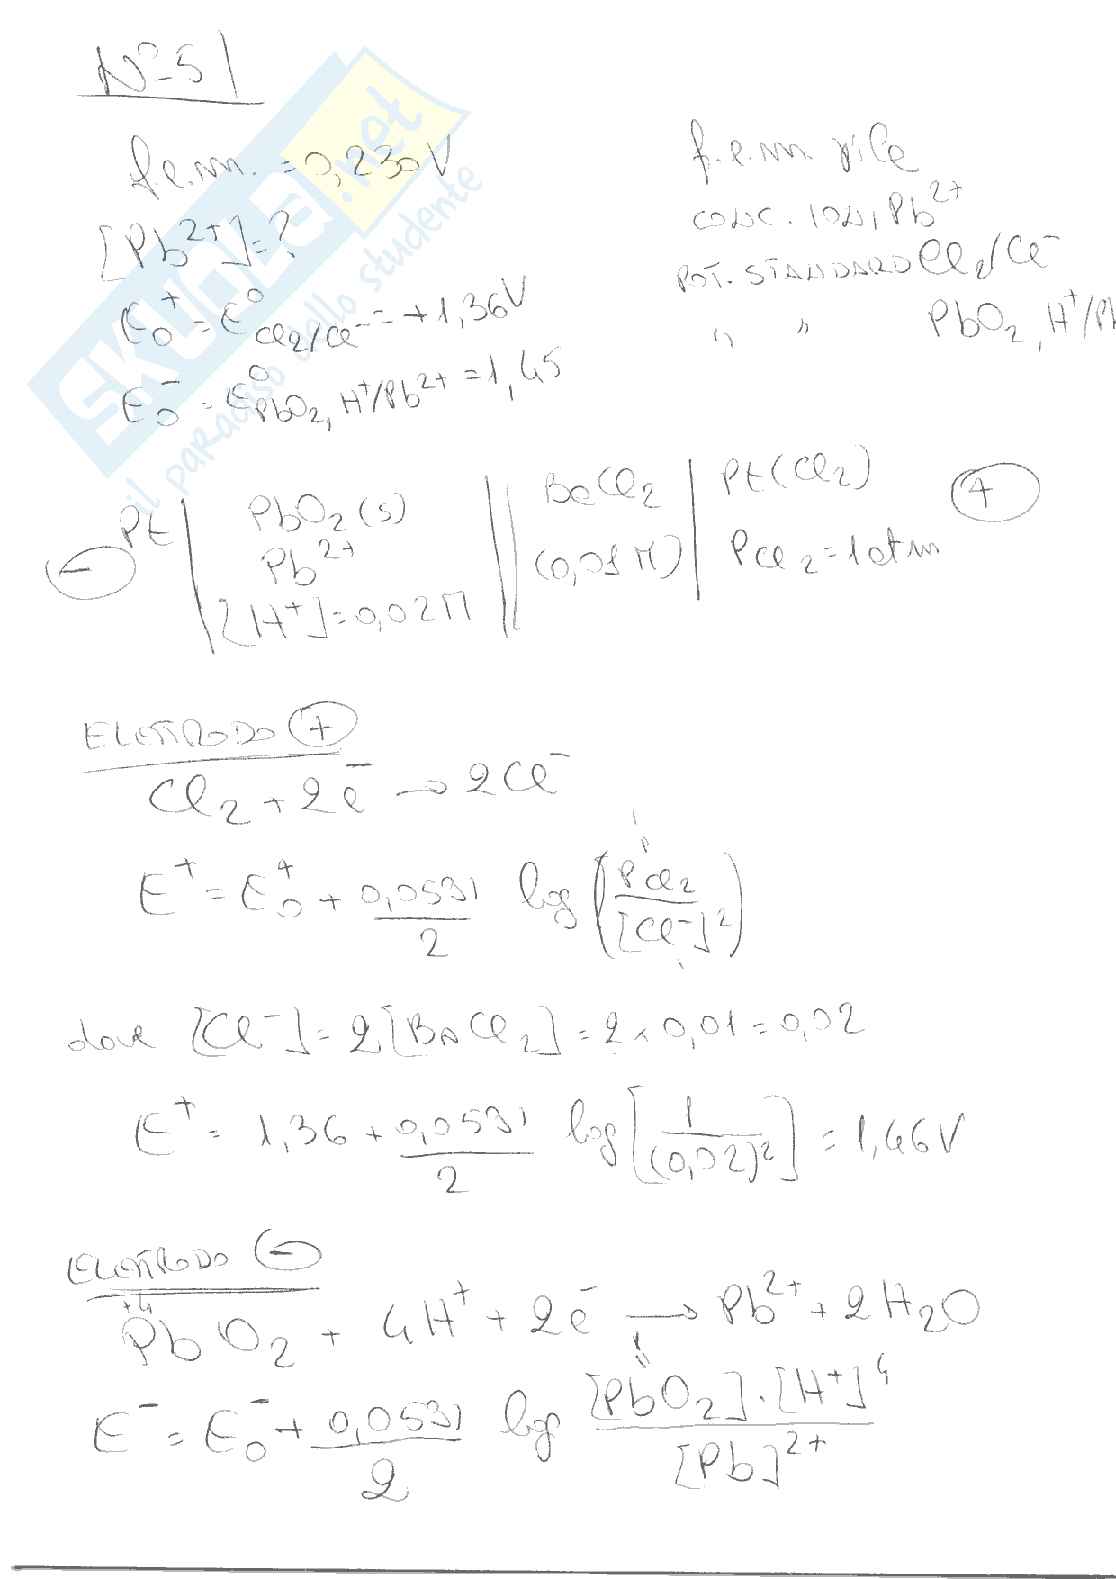 N°-5
f.e.m. = 0,230V
[Pb²⁺]=?
E₀⁺ = E⁰Cl₂/Cl⁻ = +1,36V
E₀⁻ = E⁰PbO₂, H⁺/Pb²⁺ = 1,45
f.e.m. pile
CONC. IONI Pb²⁺
POT. STANDARD Cl₂/Cl⁻
" " PbO₂, H⁺/Pb
SKUOLA.net
il paradiso dello studente
Pt | PbO₂(s) || BaCl₂ | Pt(Cl₂) (+)
(-) Pb²⁺ (0,01M) PCl₂ = 1atm
[H⁺]=0,02M
ELETTRODO (+)
Cl₂ + 2e⁻ → 2Cl⁻
E⁺ = E₀⁺ + 0,0591/2 log (PCl₂/[Cl⁻]²)
dove [Cl⁻] = 2[BaCl₂] = 2 x 0,01 = 0,02
E⁺ = 1,36 + 0,0591/2 log [1/(0,02)²] = 1,46V
ELETTRODO (-)
+4
PbO₂ + 4H⁺ + 2e⁻ → Pb²⁺ + 2H₂O
1
E⁻ = E₀⁻ + 0,0591/2 log [PbO₂]·[H⁺]⁴/[Pb]²⁺